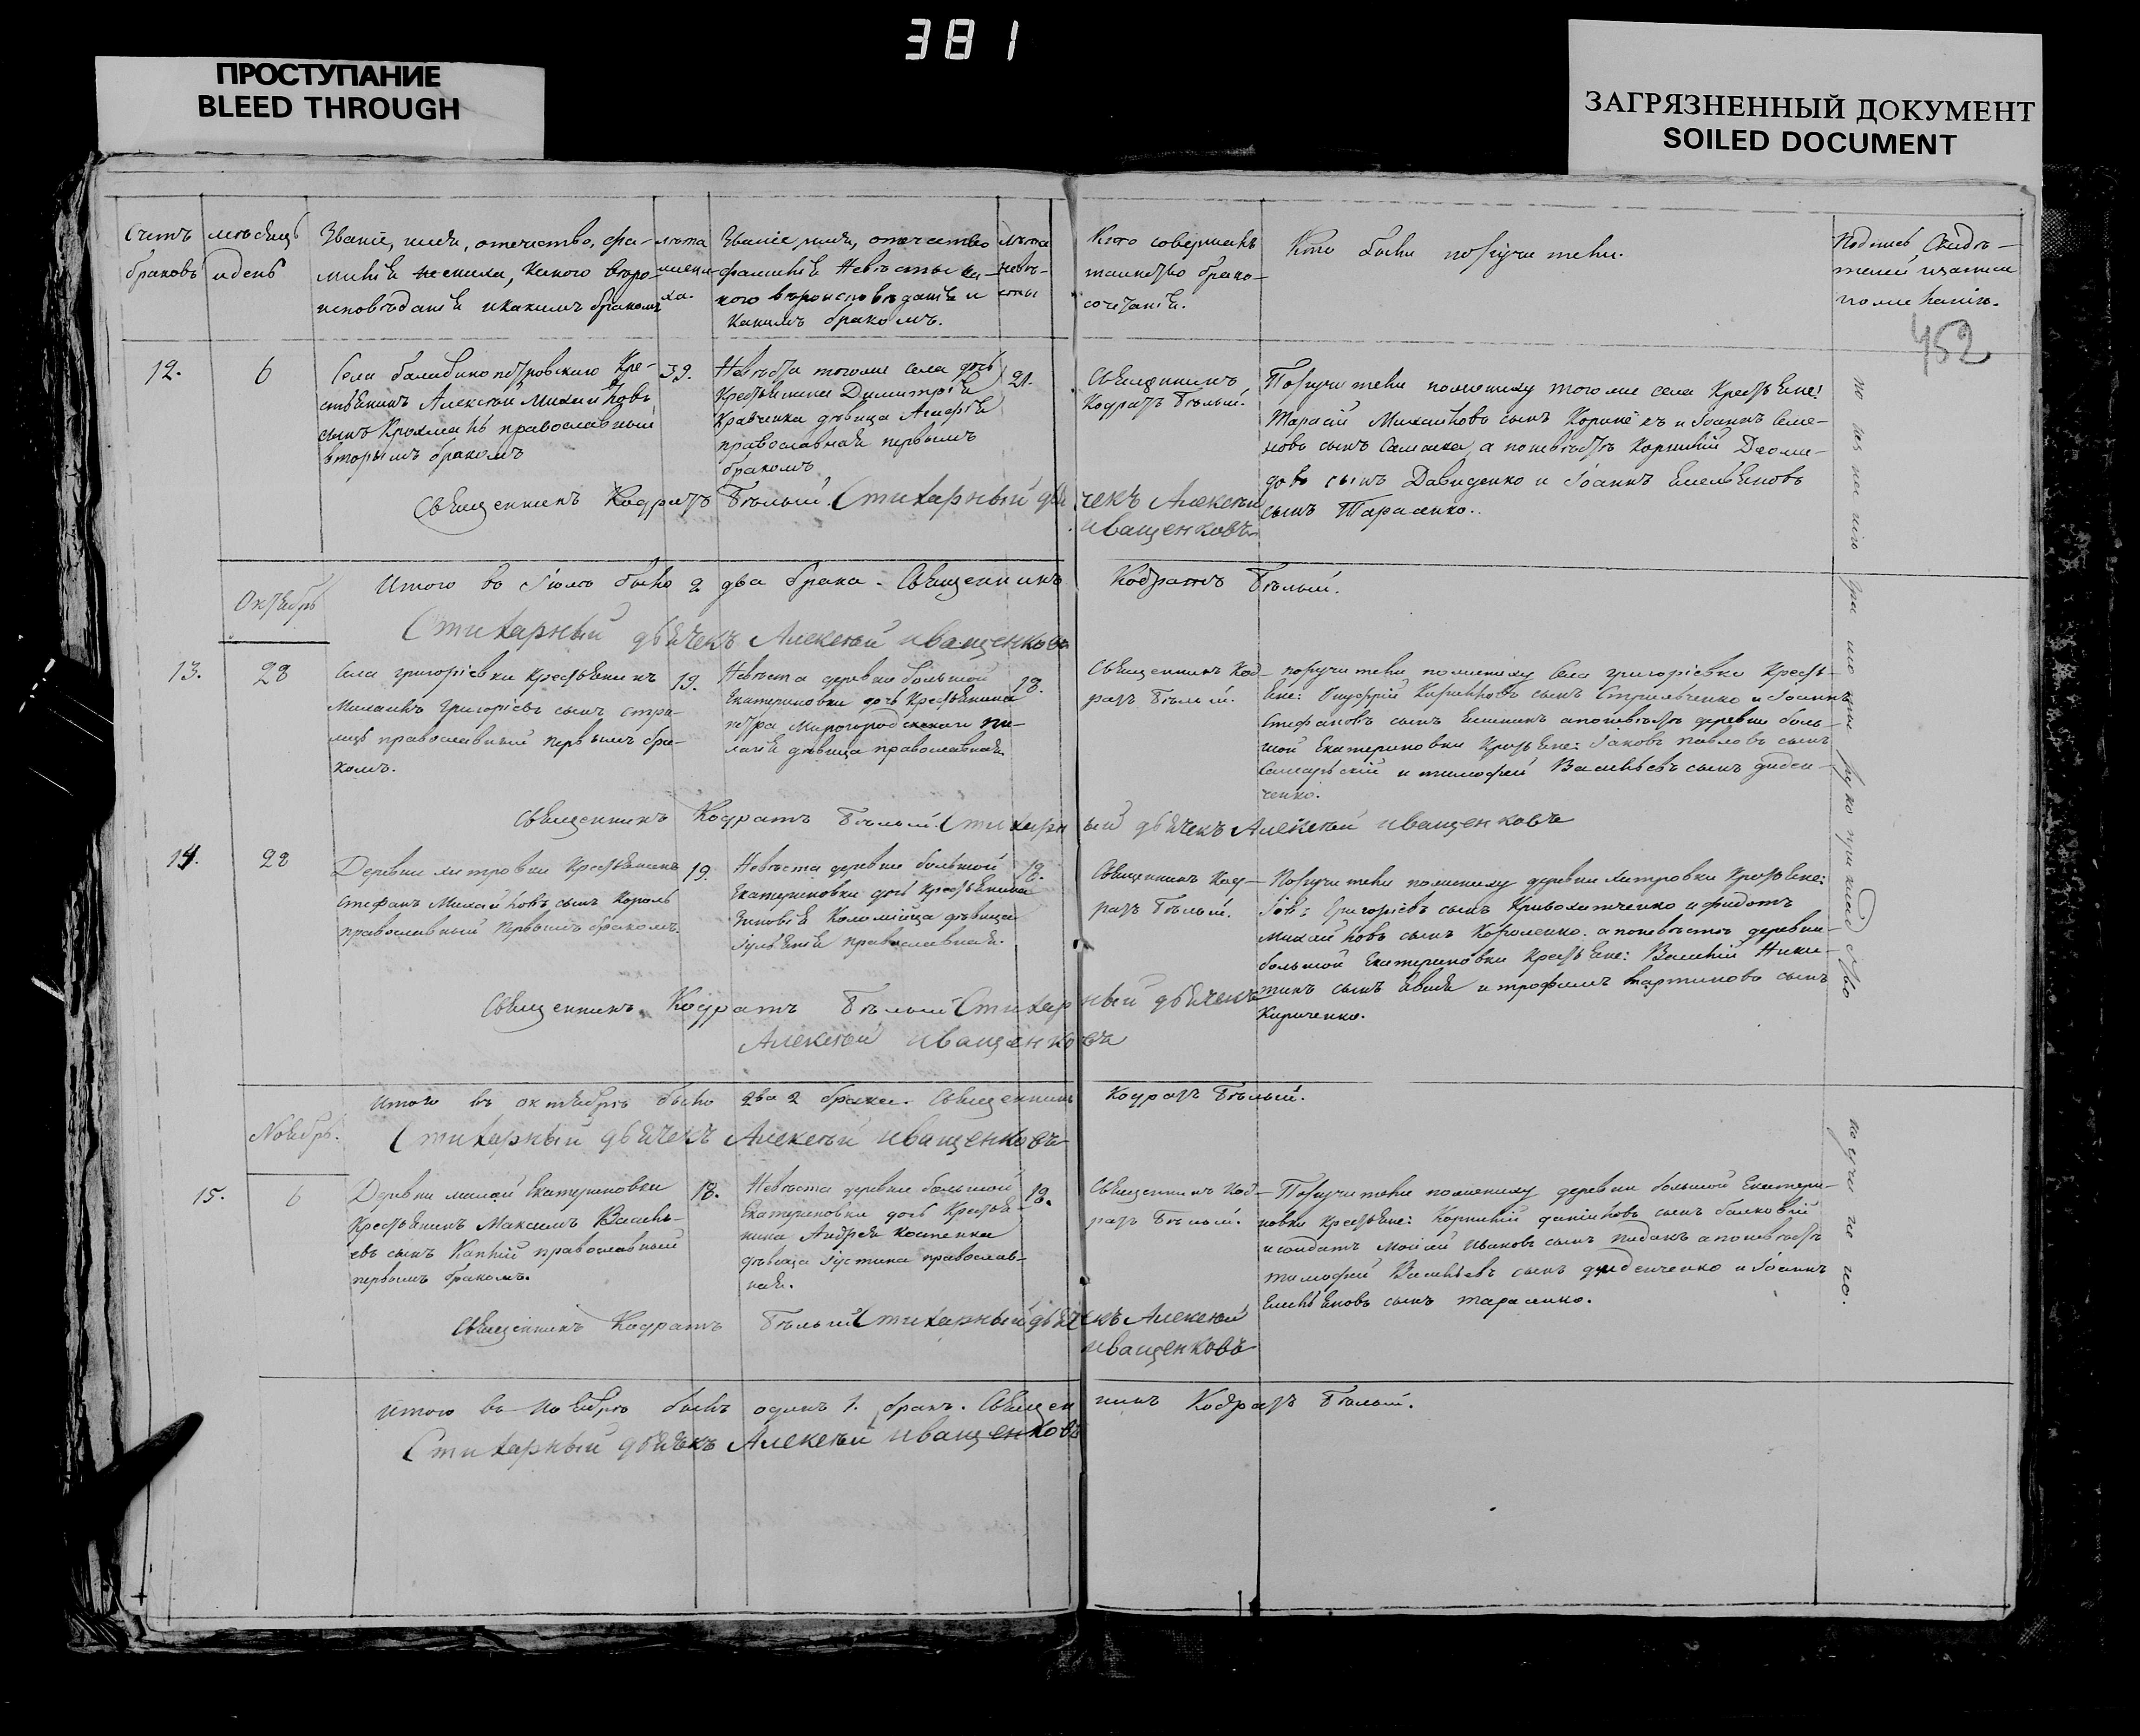 381
ПРОСТУПАНИЕ
BLEED THROUGH
ЗАГРЯЗНЕННЫЙ ДОКУМЕНТ
SOILED DOCUMENT
Счетъ браковъ
мѣсяцъ и день
Званіе, имя, отечество, фа-
милія жениха, какого вѣро-
исповѣданія и какимъ бракомъ
лѣта жени-
ха.
Званіе, имя, отечество
фамилія Невѣсты ка-
кого вѣроисповѣданія и
какимъ бракомъ.
лѣта невѣ-
сты
Кто совершалъ
таинство брако-
сочетанія.
Кто были поручители.
Подпись Свидѣ-
телей записи
по желанію.
452
12.
6
Села балабинопетровскаго Кре-
стьянинъ Алексѣй Михайловъ
сынъ православный
вторымъ бракомъ
39.
Невѣста тогоже села дочь
Крестьянина Димитрія
Кравченка дѣвица Агафія
православная первымъ
бракомъ
21.
Священникъ
Кодратъ Бѣлый.
Поручители пожениху тогоже села Крестьяне:
Тарасій Михайловъ сынъ и Іоаннъ Семе-
новъ сынъ а поневѣстѣ Корнилій Дяоми-
довъ сынъ Давиденко и Іоаннъ Емельяновъ
сынъ Тараненко.
Священникъ Кодратъ Бѣлый. Стихарный дьячекъ Алексѣй
иващенковъ
Итого въ Іюлѣ было 2 два брака. Священникъ Кодратъ Бѣлый.
Октябрь
Стихарный дьячекъ Алексѣй иващенковъ
13.
28
Села григоріевки крестьянинъ
Михаилъ Григоріевъ сынъ
православный первымъ бра-
комъ.
19.
Невѣста деревни большой
Екатериновки дочь Крестьянина
петра Миргородскаго пе-
лагія дѣвица православная.
18.
Священникъ Код-
ратъ Бѣлый.
поручители пожениху Села григоріевки Кресть-
яне: Кириловъ сынъ Стрильченко и Іоаннъ
Стефановъ сынъ апоневѣстѣ деревни боль-
шой Екатериновки Крестьяне: Іаковъ павловъ сынъ
Самарскій и тимофей Васильевъ сынъ диден-
ченко.
Священникъ Кодратъ Бѣлый. Стихарный дьячекъ Алексѣй иващенковъ
14.
28
Деревни хитровки Крестьянинъ
Стефанъ Михайловъ сынъ Король
православный первымъ бракомъ.
19.
Невѣста деревни большой
Екатериновки дочь Крестьянина
Зиновія Коломійца дѣвица
іуліянія православная.
18.
Священникъ Код-
ратъ Бѣлый.
Поручители пожениху деревни хитровки Крестьяне:
Іовъ Григоріевъ сынъ Кривохатченко и федотъ
Михайловъ сынъ Короленко. а поневѣстѣ деревни
большой Екатериновки Крестьяне: Василій Ники-
тинъ сынъ и трофимъ мартиновъ сынъ
Кириченко.
Священникъ Кодратъ Бѣлый Стихарный дьячекъ
Алексѣй иващенковъ
Итого въ октябрѣ было два 2 брака. Священникъ Кодратъ Бѣлый.
Ноябрь.
Стихарный дьячекъ Алексѣй иващенковъ
15.
6
Деревни малой Екатериновки
Крестьянинъ Максимъ Василь-
евъ сынъ православный
первымъ бракомъ.
18.
Невѣста деревни большой
Екатериновки дочь Крестья-
нина Андрея костенка
дѣвица Іустина православ-
ная.
18.
Священникъ Код-
ратъ Бѣлый.
Поручители пожениху деревни большой Екатери-
новки крестьяне: Корнилій даніиловъ сынъ
и солдатъ Мойсій Ивановъ сынъ апоневѣстѣ
тимофей Васильевъ сынъ диденченко и Іоаннъ
Емельяновъ сынъ тараненко.
Священникъ Кодратъ Бѣлый Стихарный дьячекъ Алексѣй
иващенковъ
Итого въ ноябрѣ былъ одинъ 1. бракъ. Священникъ Кодратъ Бѣлый.
Стихарный дьячекъ Алексѣй иващенковъ